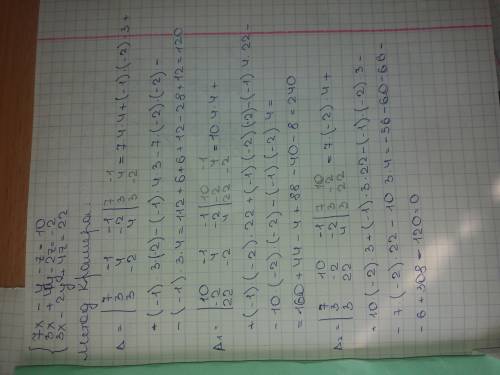 7x - y - z = 10
3x + 4y - 2z = -2
3x - 2y + 4z = 22
Метод Крамера.
Δ = | 7 -1 -1 | 7 -1
3 4 -2 | 3 4
3 -2 4 | 3 -2 = 7·4·4+(-1)·(-2)·3+
+(-1)·3(2)-(-1)·4·3-7·(-2)·(-2)-
-(-1)·3·4=112+6+6+12-28+12=120
Δ1 = | 10 -1 -1 | 10 -1
-2 4 -2 | -2 4
22 -2 4 | 22 -2 = 10·4·4+
+(-1)(-2)·22+(-1)(-2)(2)-(-1)·4·22-
-10(-2)·(-2)-(-1)(-2)·4=
=160+44-4+88-40-8=240
Δ2 = | 7 10 -1 | 7 10
3 -2 -2 | 3 -2
3 22 4 | 3 22 = 7·(-2)·4+
+10(-2)·3+(-1)·3·22-(-1)·(-2)·3-
-7·(-2)·22-10·3·4=-56-60-66-
-6+308-120=0